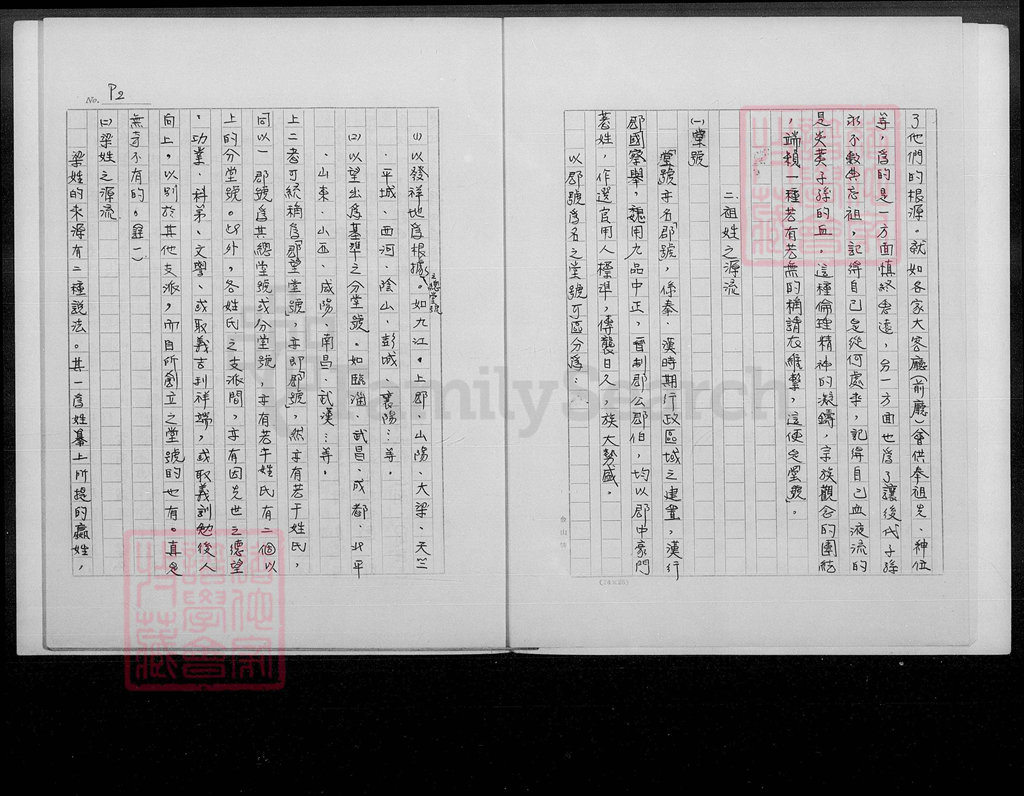 了他們的根源。就如各家大客廳(前廳)會供奉祖先、神位
等,爲的是一方面慎終追遠,另一方面也爲了讓後代子孫
永不數典忘祖,記得自己是從何處來,記得自己血液流的
是炎黃子孫的血。這種倫理精神的凝鑄,宗族觀念的團結
,端賴一種若有若無的稱謂在維繫,這便是「堂號」。
二、祖姓之源流
(一)堂號
「堂號」亦名「郡號」,係秦、漢時期行政區域之建置,漢行
郡國察舉,魏用九品中正,晉制郡公郡伯,均以郡中豪門
著姓,作選官用人標準,傳襲日久,族大勢盛。
以郡號爲名之堂號可區分爲:
台山信
(14×25)
No. P2
(1)以發祥地爲根據之總堂號。如九江、上郡、山陽、大梁、天竺
、平城、西河、陰山、彭城、襄陽…等。
(2)以望出爲基準之分堂號。如臨淄、武昌、成都、北平
、山東、山西、咸陽、南昌、武漢…等。
上二者可統稱爲「郡望堂號」,亦即「郡號」,然亦有若干姓氏,
同以一郡號爲其總堂號或分堂號,亦有若干姓氏有二個以
上的分堂號。此外,各姓氏之支派間,亦有因先世之德望
、功業、科第、文譽、或取義吉利祥瑞,或取義訓勉後人
向上,以別於其他支派,而自所創立之堂號的也有。真是
無奇不有的。(註一)
(二)梁姓之源流
梁姓的來源有二種說法。其一爲姓纂上所說的嬴姓,
FamilySearch